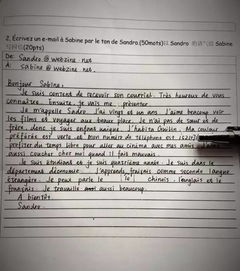 2. Ecrivez un e-mail à Sabine par le ton de Sandra.(50mots) Sandra Sabine
(20pts)
De: Sandra @ webzine. net.
A: sabine @ webzine. net.
Bonjour Sabine:
Je suis content de recevoir son courriel. Très heureux de vous
connaître. Ensuite, je vais me présenter
Je m'appelle Sandra. J'ai vingt et un ans. J'aime beaucoup voir
les films et voyager aux beaux place. Je n'ai pas de sœur et de
frère, donc je suis enfant unique. J'habite Ma couleur
préférée est verte et mon numéro de téléphone est
profiter du temps libre pour aller au cinéma avec mes amis.
aussi coucher chez moi quand il fait mauvais.
Je suis étudiant et je suis quatrième année. Je suis dans le
département d'économie. J'apprends français comme seconde langue
étrangère. Je peux parle le chinois, l'anglais et le
français. Je travaille aussi beaucoup.
A bientôt.
Sandra.